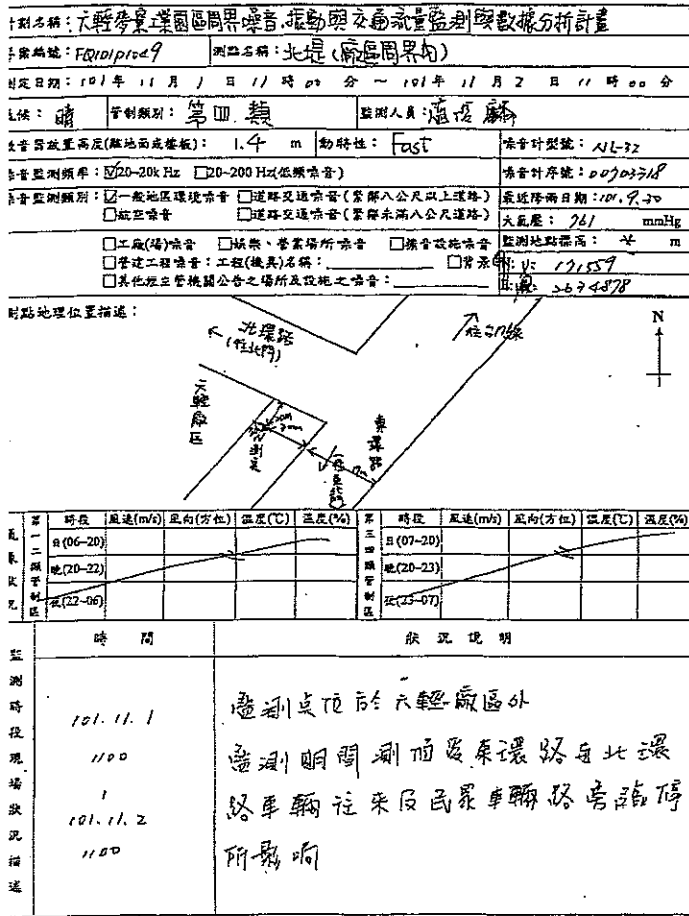 計劃名稱：六輕麥寮工業園區周界噪音、振動與交通流量監測與數據分析計畫
專案編號：FQ101P1049 測點名稱：北堤(廠區周界內)
測定日期：101年11月1日11時00分～101年11月2日11時00分
氣候：晴 管制類別：第四類 監測人員：
噪音器放置高度(離地面或樓板)：1.4 m 動特性：Fast 噪音計型號：NL-32
噪音監測頻率：☑20~20k Hz □20~200 Hz(低頻噪音) 噪音計序號：00703318
噪音監測類別：☑一般地區環境噪音 □道路交通噪音(緊鄰八公尺以上道路) 最近降雨日期：101.9.30
□航空噪音 □道路交通噪音(緊鄰未滿八公尺道路) 大氣壓：761 mmHg
□工廠(場)噪音 □娛樂、營業場所噪音 □擴音設施噪音 監測地點標高： m
□營建工程噪音：工程(機具)名稱： □背景 171559
□其他經主管機關公告之場所及設施之噪音： 2634878
測點地理位置描述：
北環路
(往北門)
N
六輕廠区
測点
東環路
第一二類管制區 時段 風速(m/s) 風向(方位) 溫度(℃) 濕度(%) 第三四類管制區 時段 風速(m/s) 風向(方位) 溫度(℃) 濕度(%)
氣象狀況
日(06~20) 日(07~20)
晚(20~22) 晚(20~23)
夜(22~06) 夜(23~07)
監測時段現場狀況描述
時間 狀況說明
101.11.1 監測点位於六輕廠區外
1100 監測期間測值受東環路与北環
101.11.2 路車輛往來及民眾車輛路旁臨停
1100 所影响